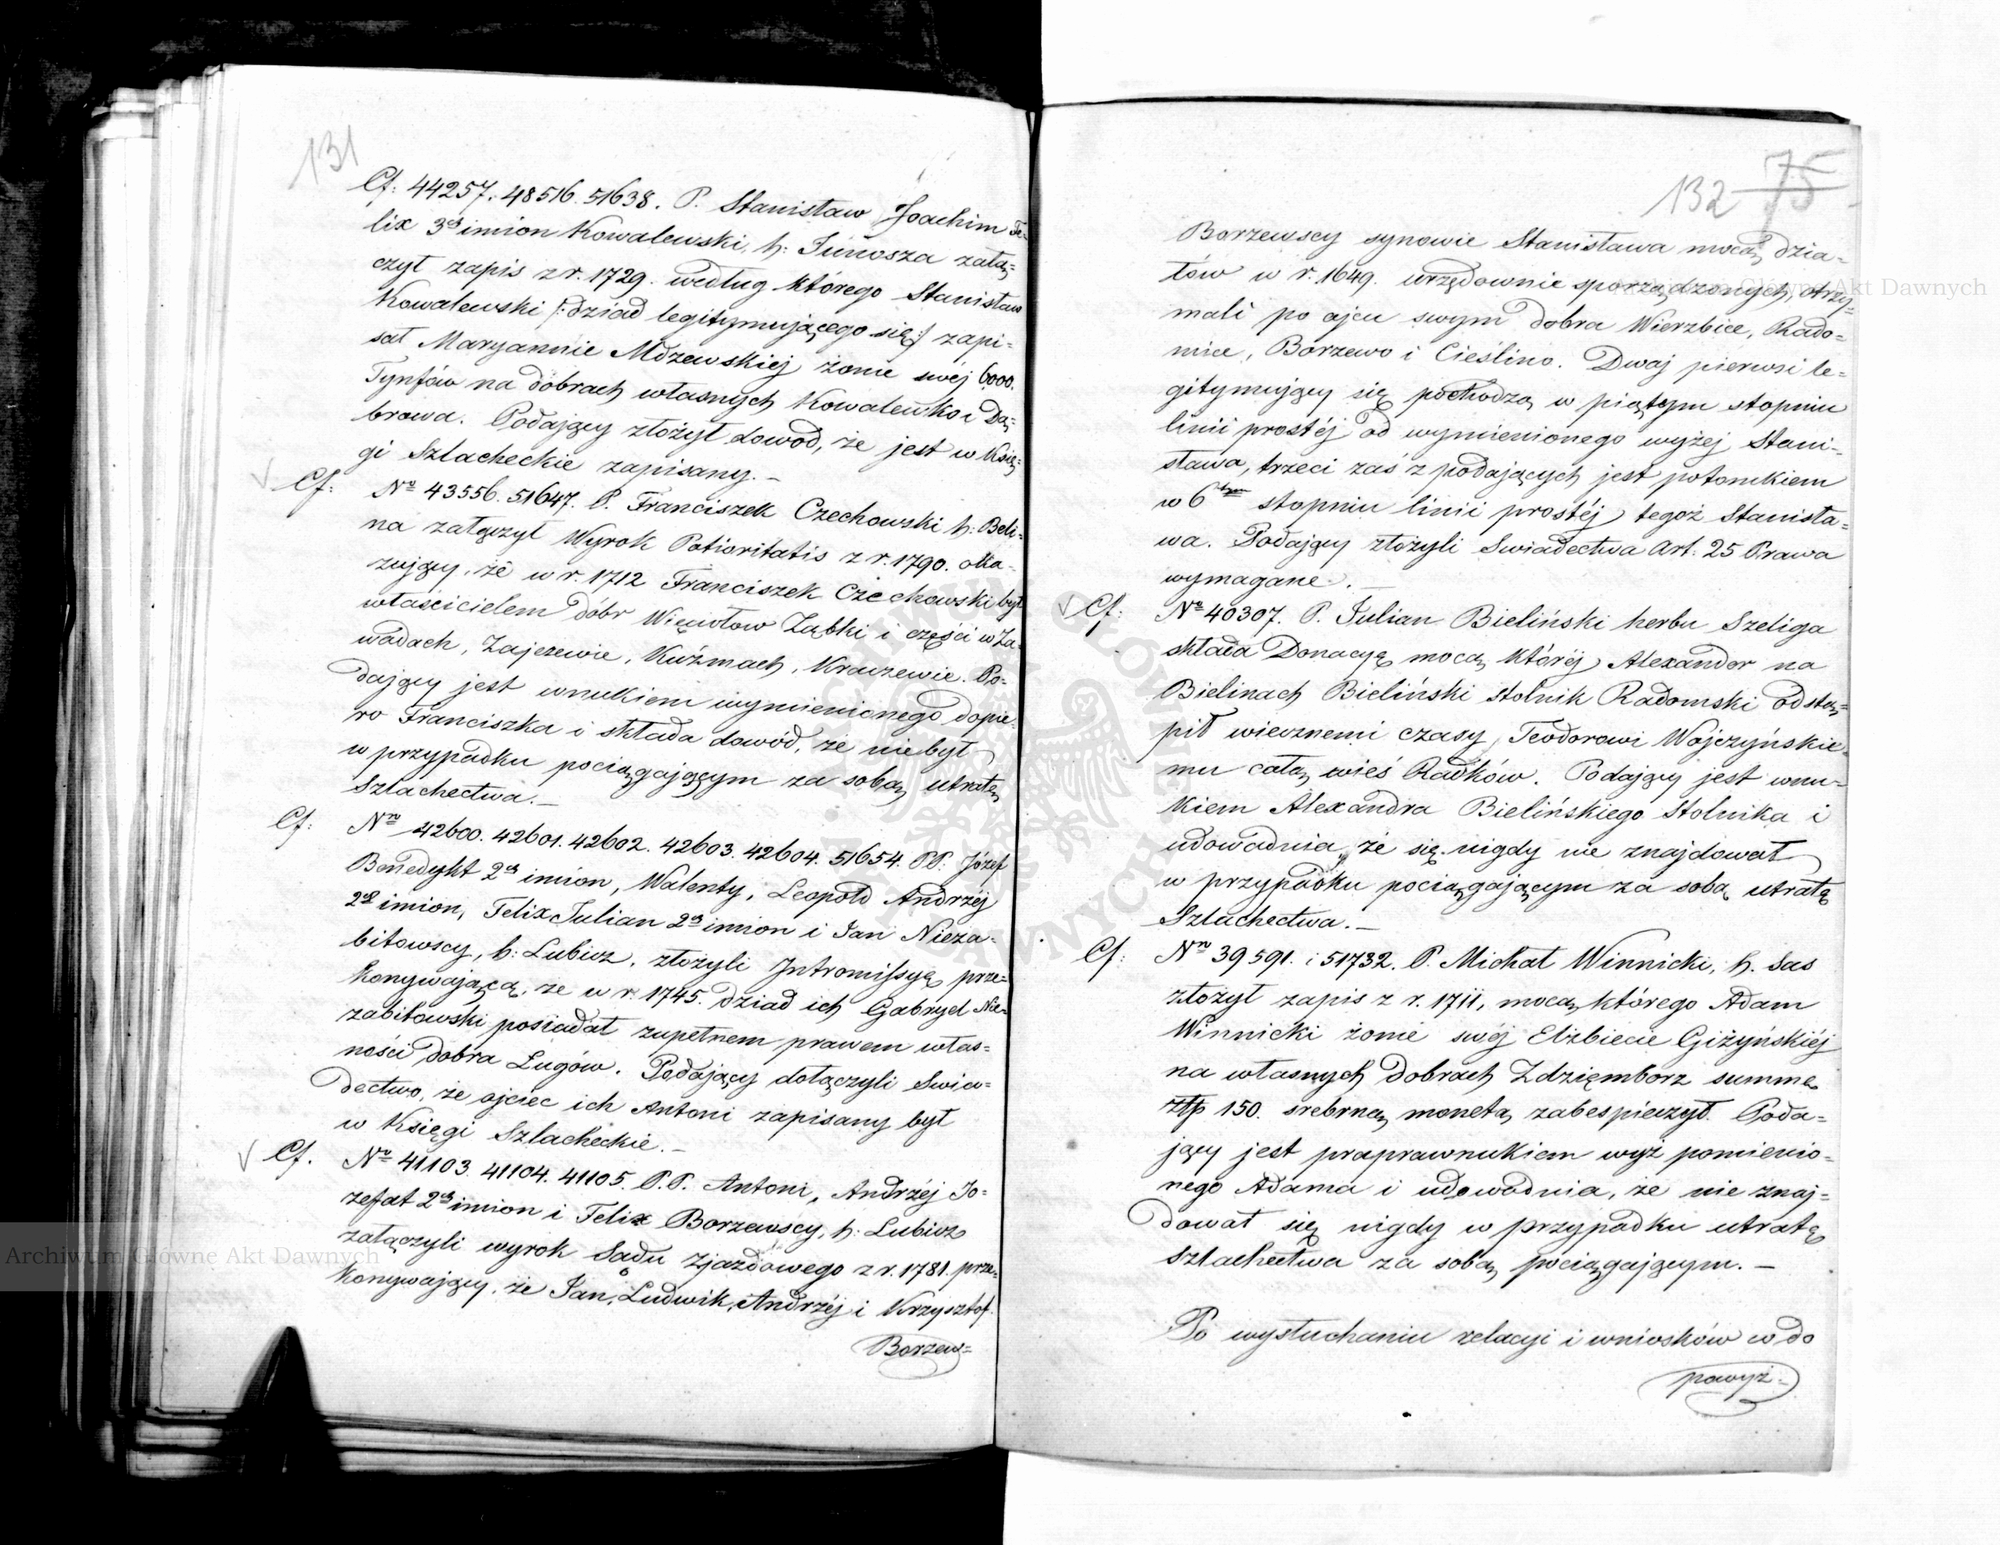 131
Cf: 44257. 48516. 51638. P. Stanisław Joachim Fe-
lix 3ch imion Kowalewski, h: Junosza załą=
czył zapis z r. 1729. według którego Stanisław
Kowalewski /:dziad legitymującego się:/ zapi-
sał Maryannie Mdzewskiej żonie swéj 6000.
Tynfów na dobrach własnych Kowalewko i Dą=
browa. Podający złożył dowód, że jest w Księ=
gi Szlacheckie zapisany. –
Cf: No 43556. 51647. P. Franciszek Czechowski h: Beli=
na załączył Wyrok Potioritatis z r. 1790. oka-
zujący, że w r. 1712 Franciszek Czechowski był
właścicielem dóbr Więciołow Ząbki i części w Za-
wadach, Zajezewie, Kuźmach, Kraczewie. Po-
dający jest wnukiem wymienionego dopie-
ro Franciszka i składa dowód, że nie był
w przypadku pociągającym za sobą utratę
Szlachectwa. –
Cf: Nro 42600. 42601. 42602. 42603. 42604. 51654. P.P. Józef
Benedykt 2ch imion, Walenty, Leopold Andrzéj
2ch imion, Felix Julian 2ch imion i Jan Nieza-
bitowscy, h: Lubicz, złożyli Intromissyą prze=
konywającą, że w r. 1745. dziad ich Gabryel Nie=
zabitowski posiadał zupełnem prawem włas=
ności dobra Ługów. Podający dołączyli Swia-
dectwo, że ojciec ich Antoni zapisany był
w Księgi Szlacheckie. –
Cf. No 41103. 41104. 41105. P.P. Antoni, Andrzéj Jo-
zefat 2ch imion i Felix Borzewscy, h: Lubicz
załączyli wyrok Sądu Zjazdowego z r. 1781. prze=
konywający, że Jan, Ludwik, Andrzéj i Krzysztof.
Borzew=
132 75
Borzewscy synowie Stanisława mocą dzia-
łów w r. 1649. urzędownie sporządzonych, otrzy=
mali po ojcu swym dobra Wierzbice, Rado-
mice, Borzewo i Cieślino. Dwaj pierwsi le-
gitymujący się pochodzą w piątym stopniu
linii prostéj od wymienionego wyżéj Stani-
sława, trzeci zaś z podających jest potomkiem
w 6tym stopniu linii prostéj tegoż Stanisła-
wa. Podający złożyli Swiadectwa Art. 25 Prawa
wymagane. –
Cf: No 40307. P. Julian Bieliński herbu Szeliga
składa Donacyę mocą któréj Alexander na
Bielinach Bieliński Stolnik Radomski odstą=
pił wiecznemi czasy Teodorowi Wojczyńskie-
mu całą wieś Radków. Podający jest wnu-
kiem Alexandra Bielińskiego Stolnika i
udowadnia, że się nigdy nie znajdował
w przypadku pociągającym za sobą utratę
Szlachectwa. –
Cf: Nro 39591. i 51732. P. Michał Winnicki, h. Sas
złożył zapis z r. 1711, mocą którego Adam
Winnicki żonie swéj Elżbiecie Giżyńskiéj
na własnych dobrach Zdziemborz summę
złp 150. srebrną monetą zabespieczył. Poda-
jący jest praprawnukiem wyż pomienio-
nego Adama i udowadnia, że nie znaj-
dował się nigdy w przypadku utratę
szlachectwa za sobą pociągającym. –
Po wysłuchaniu relacyi i wniosków co do
powyż=
Archiwum Główne Akt Dawnych
Archiwum Główne Akt Dawnych